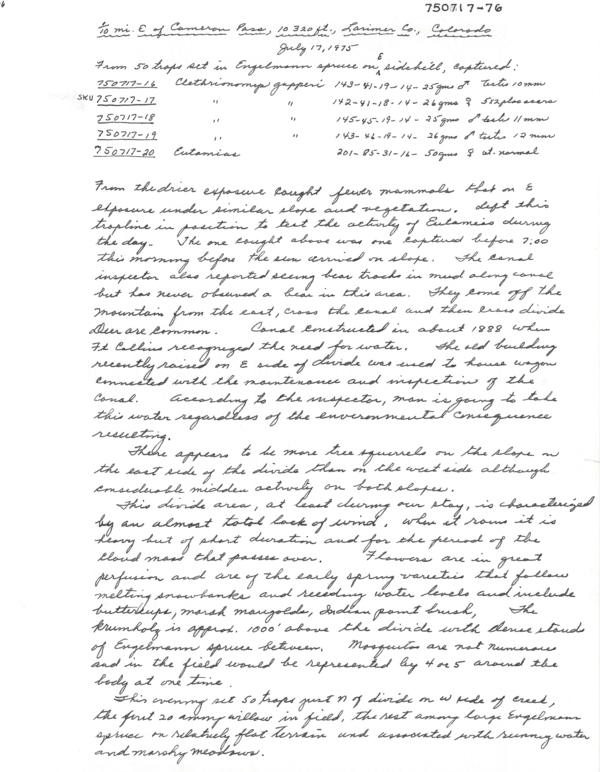 750717-76
1/10 mi. E of Cameron Pass, 10 320 ft., Larimer Co., Colorado
July 17, 1975
From 50 traps set in Engelmann spruce on E sidehill, captured:
750717-16 Clethrionomys gapperi 143-41-19-14-25gms ♂ testes 10mm
SKU 750717-17 " " 142-41-18-14-26gms ♀ 5 R2 plac scars
750717-18 " " 145-45-19-14-25gms ♂ testes 11mm
750717-19 " " 143-46-19-14-26gms ♂ testes 12mm
750717-20 Eutamias 201-85-31-16-50gms ♀ ut. normal
From the drier exposure caught fewer mammals that on E
exposure under similar slope and vegetation. Left this
trapline in position to test the activity of Eutamias during
the day. The one caught above was one captured before 7:00
this morning before the sun arrived on slope. The canal
inspector also reported seeing bear tracks in mud along canal
but has never observed a bear in this area. They come off the
mountain from the east, cross the canal and then cross divide
Deer are common. Canal constructed in about 1888 when
Ft Collins recognized the need for water. The old building
recently raised on E side of divide was used to house wagon
connected with the maintenance and inspection of the
canal. According to the inspector, man is going to take
this water regardless of the environmental consequence
resulting.
There appears to be more tree squirrels on the slope on
the east side of the divide than on the west side although
considerable midden activity on both slopes.
This divide area, at least during our stay, is characterized
by an almost total lack of wind. When it rains it is
heavy but of short duration and for the period of the
cloud mass that passes over. Flowers are in great
perfusion and are of the early spring varieties that follow
melting snowbanks and receding water levels and include
buttercups, marsh marigolds, Indian paint brush, The
krumholz is approx. 1000' above the divide with dense stands
of Engelmann spruce between. Mosquitos are not numerous
and in the field would be represented by 4 or 5 around the
body at one time.
This evening set 50 traps just N of divide on W side of creek,
the first 20 among willow in field, the rest among large Engelmann
spruce on relatively flat terrain and associated with running water
and marshy meadows.